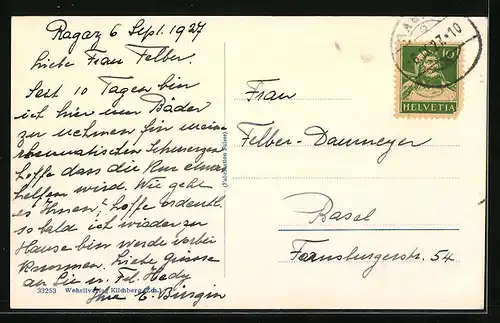 Ragaz 6 Sept. 1927
Liebe Frau Felber.
Seit 10 Tagen bin
ich hier um Bäder
zu nehmen für meine
rheumatischen Schmerzen
hoffe dass die Kur etwas
helfen wird. Wie geht
es Ihnen?, hoffe ordentl.
sobald ich wieder zu
Hause bin werde vorbei
kommen. Liebe Grüsse
an Sie u. Frl. Hedy
Ihre E. Bürgin
33253 Wehrliverlag Kilchberg (Zch.)
10
HELVETIA
Frau
Felber-Daumeyer
Basel
Farnsburgerstr. 54